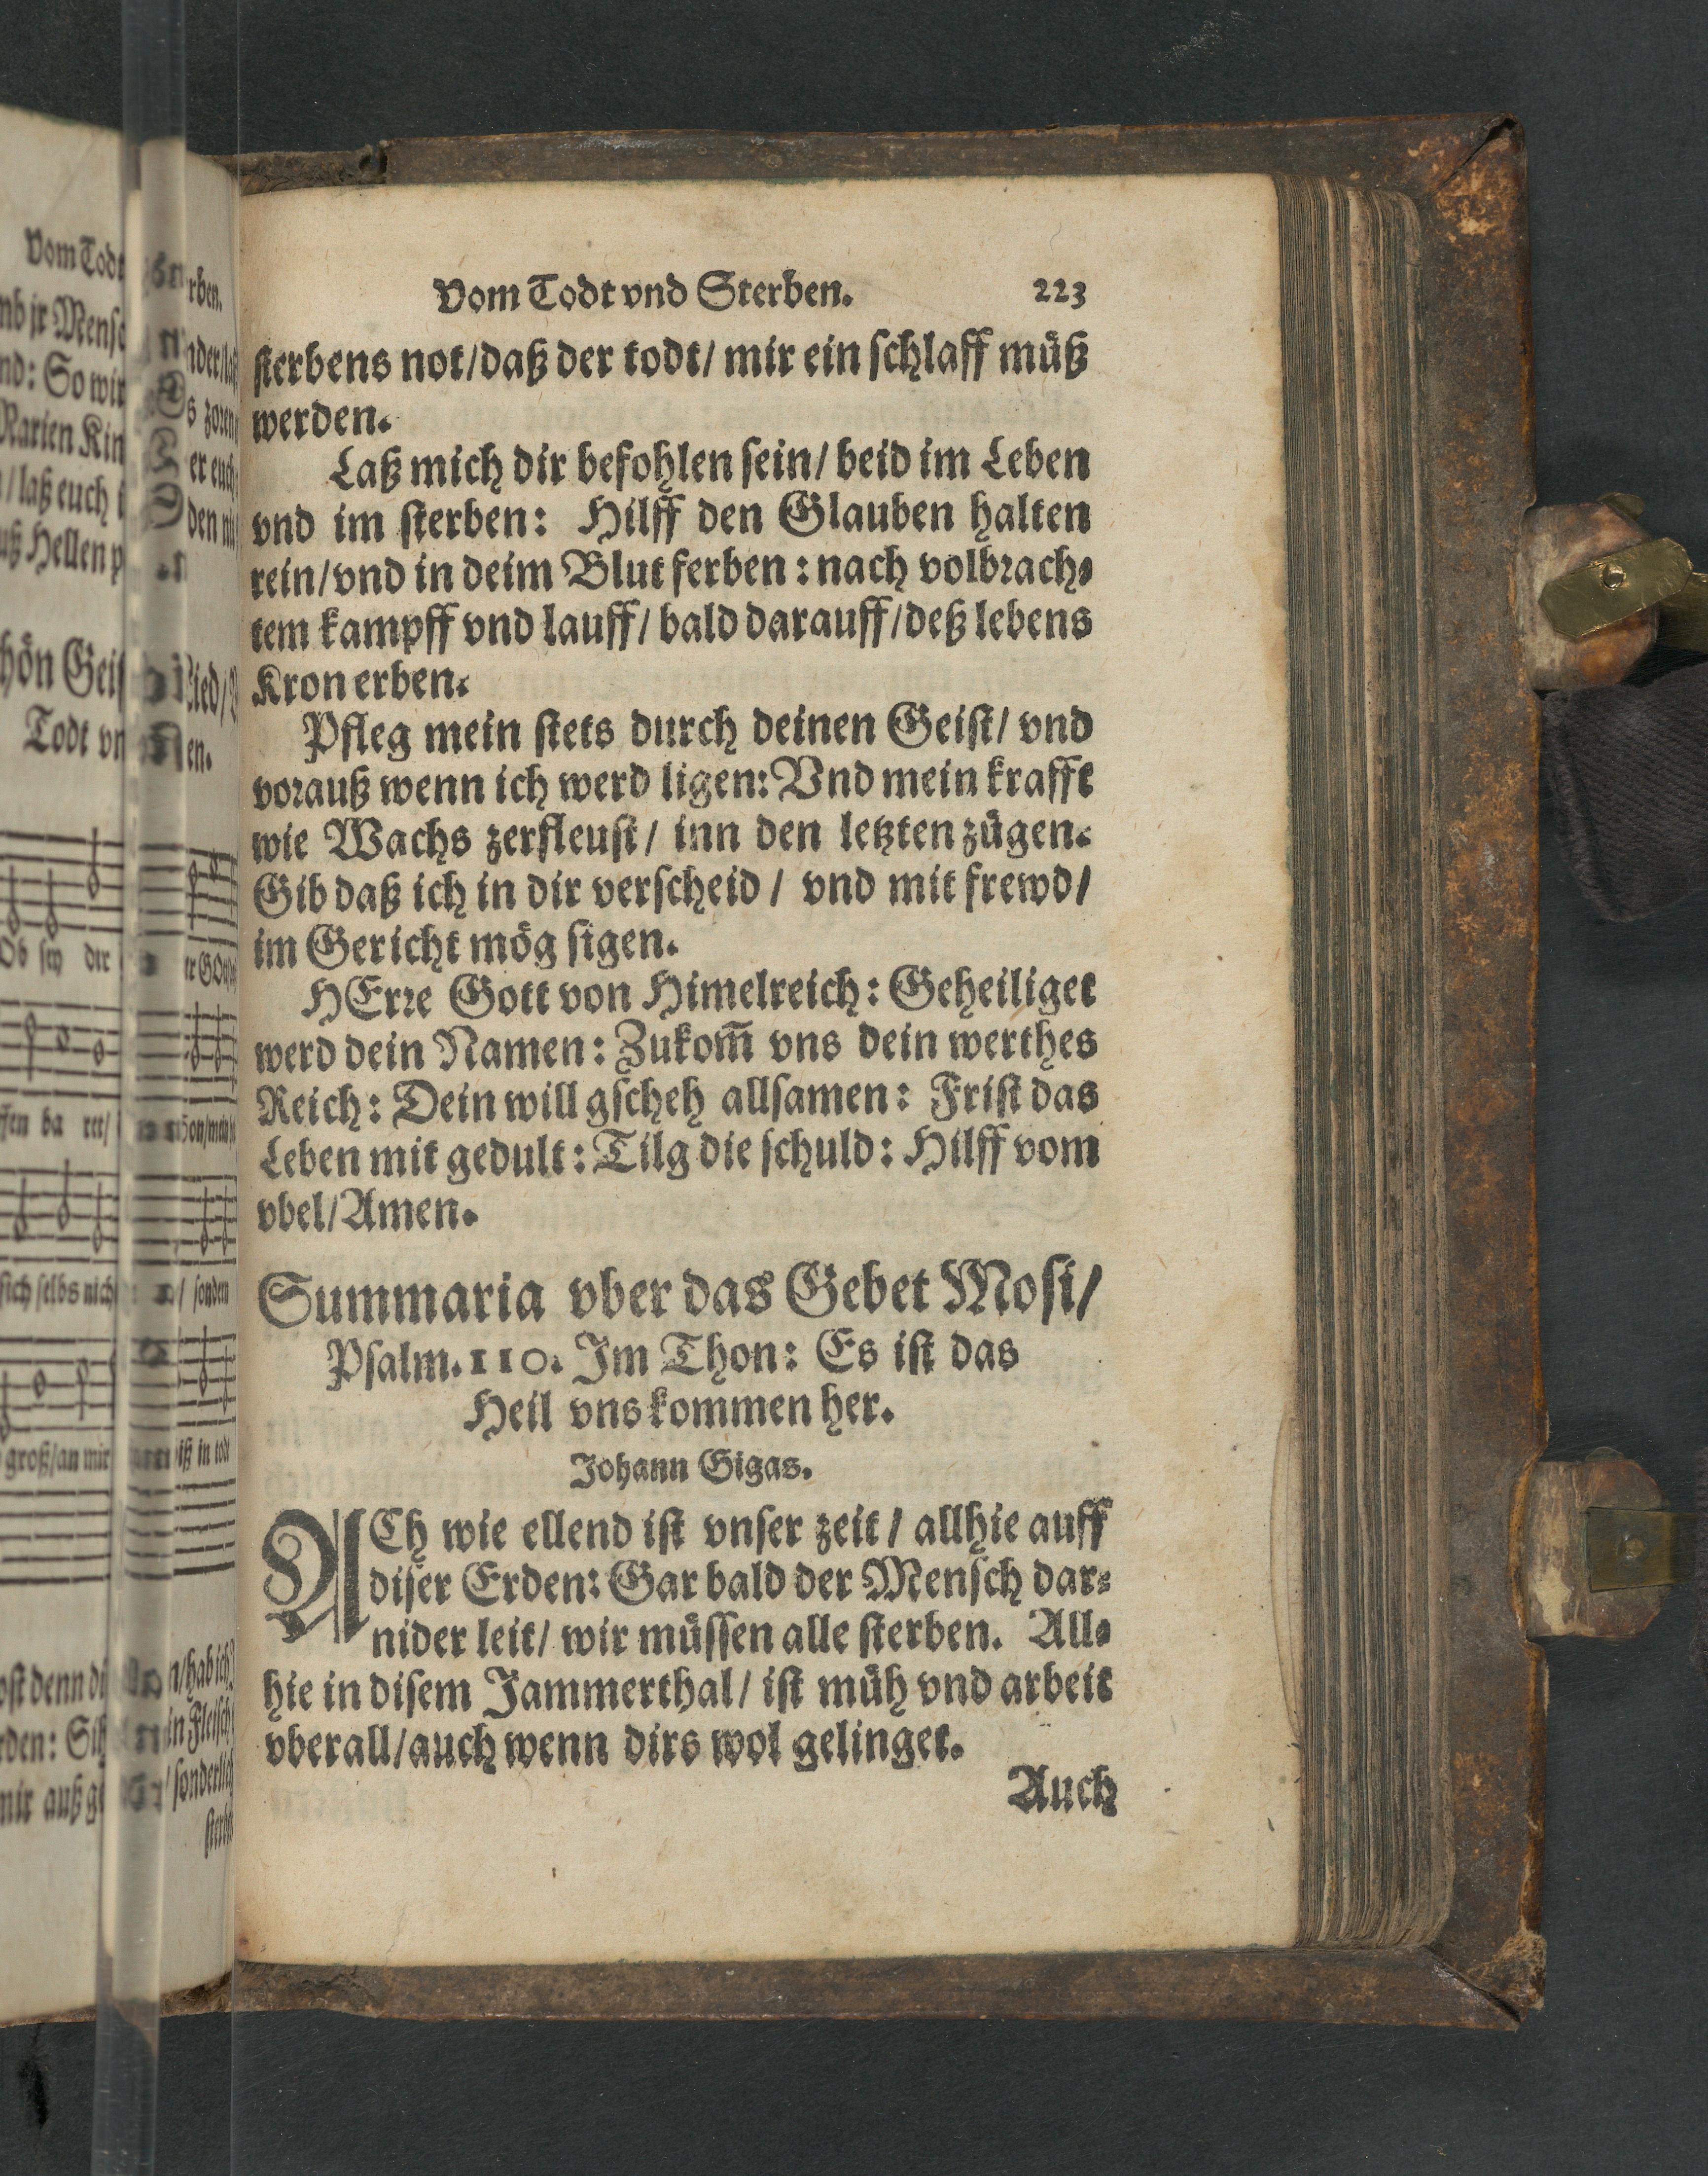 Vom Todt vnd Sterben. 223
sterbens not/daß der todt/ mir ein schlaff müß
werden.
Laß mich dir befohlen sein/ beid im Leben
vnd im sterben: Hilff den Glauben halten
rein/vnd in deim Blut ferben: nach volbrach-
tem kampff vnd lauff/ bald darauff/deß lebens
Kron erben.
Pfleg mein stets durch deinen Geist/ vnd
vorauß wenn ich werd ligen: Vnd mein krafft
wie Wachs zerfleust/ inn den letzten zügen.
Gib daß ich in dir verscheid/ vnd mit frewd/
im Gericht mög sigen.
HErre Gott von Himelreich: Geheiliget
werd dein Namen: Zukom̃ vns dein werthes
Reich: Dein will gscheh allsamen: Frist das
Leben mit gedult: Tilg die schuld: Hilff vom
vbel/Amen.
Summaria vber das Gebet Mosi/
Psalm.110. Im Thon: Es ist das
Heil vns kommen her.
Johann Gigas.
ACh wie ellend ist vnser zeit/ allhie auff
diser Erden: Gar bald der Mensch dar-
nider leit/ wir müssen alle sterben. All-
hie in disem Jammerthal/ ist müh vnd arbeit
vberall/auch wenn dirs wol gelinget.
Auch